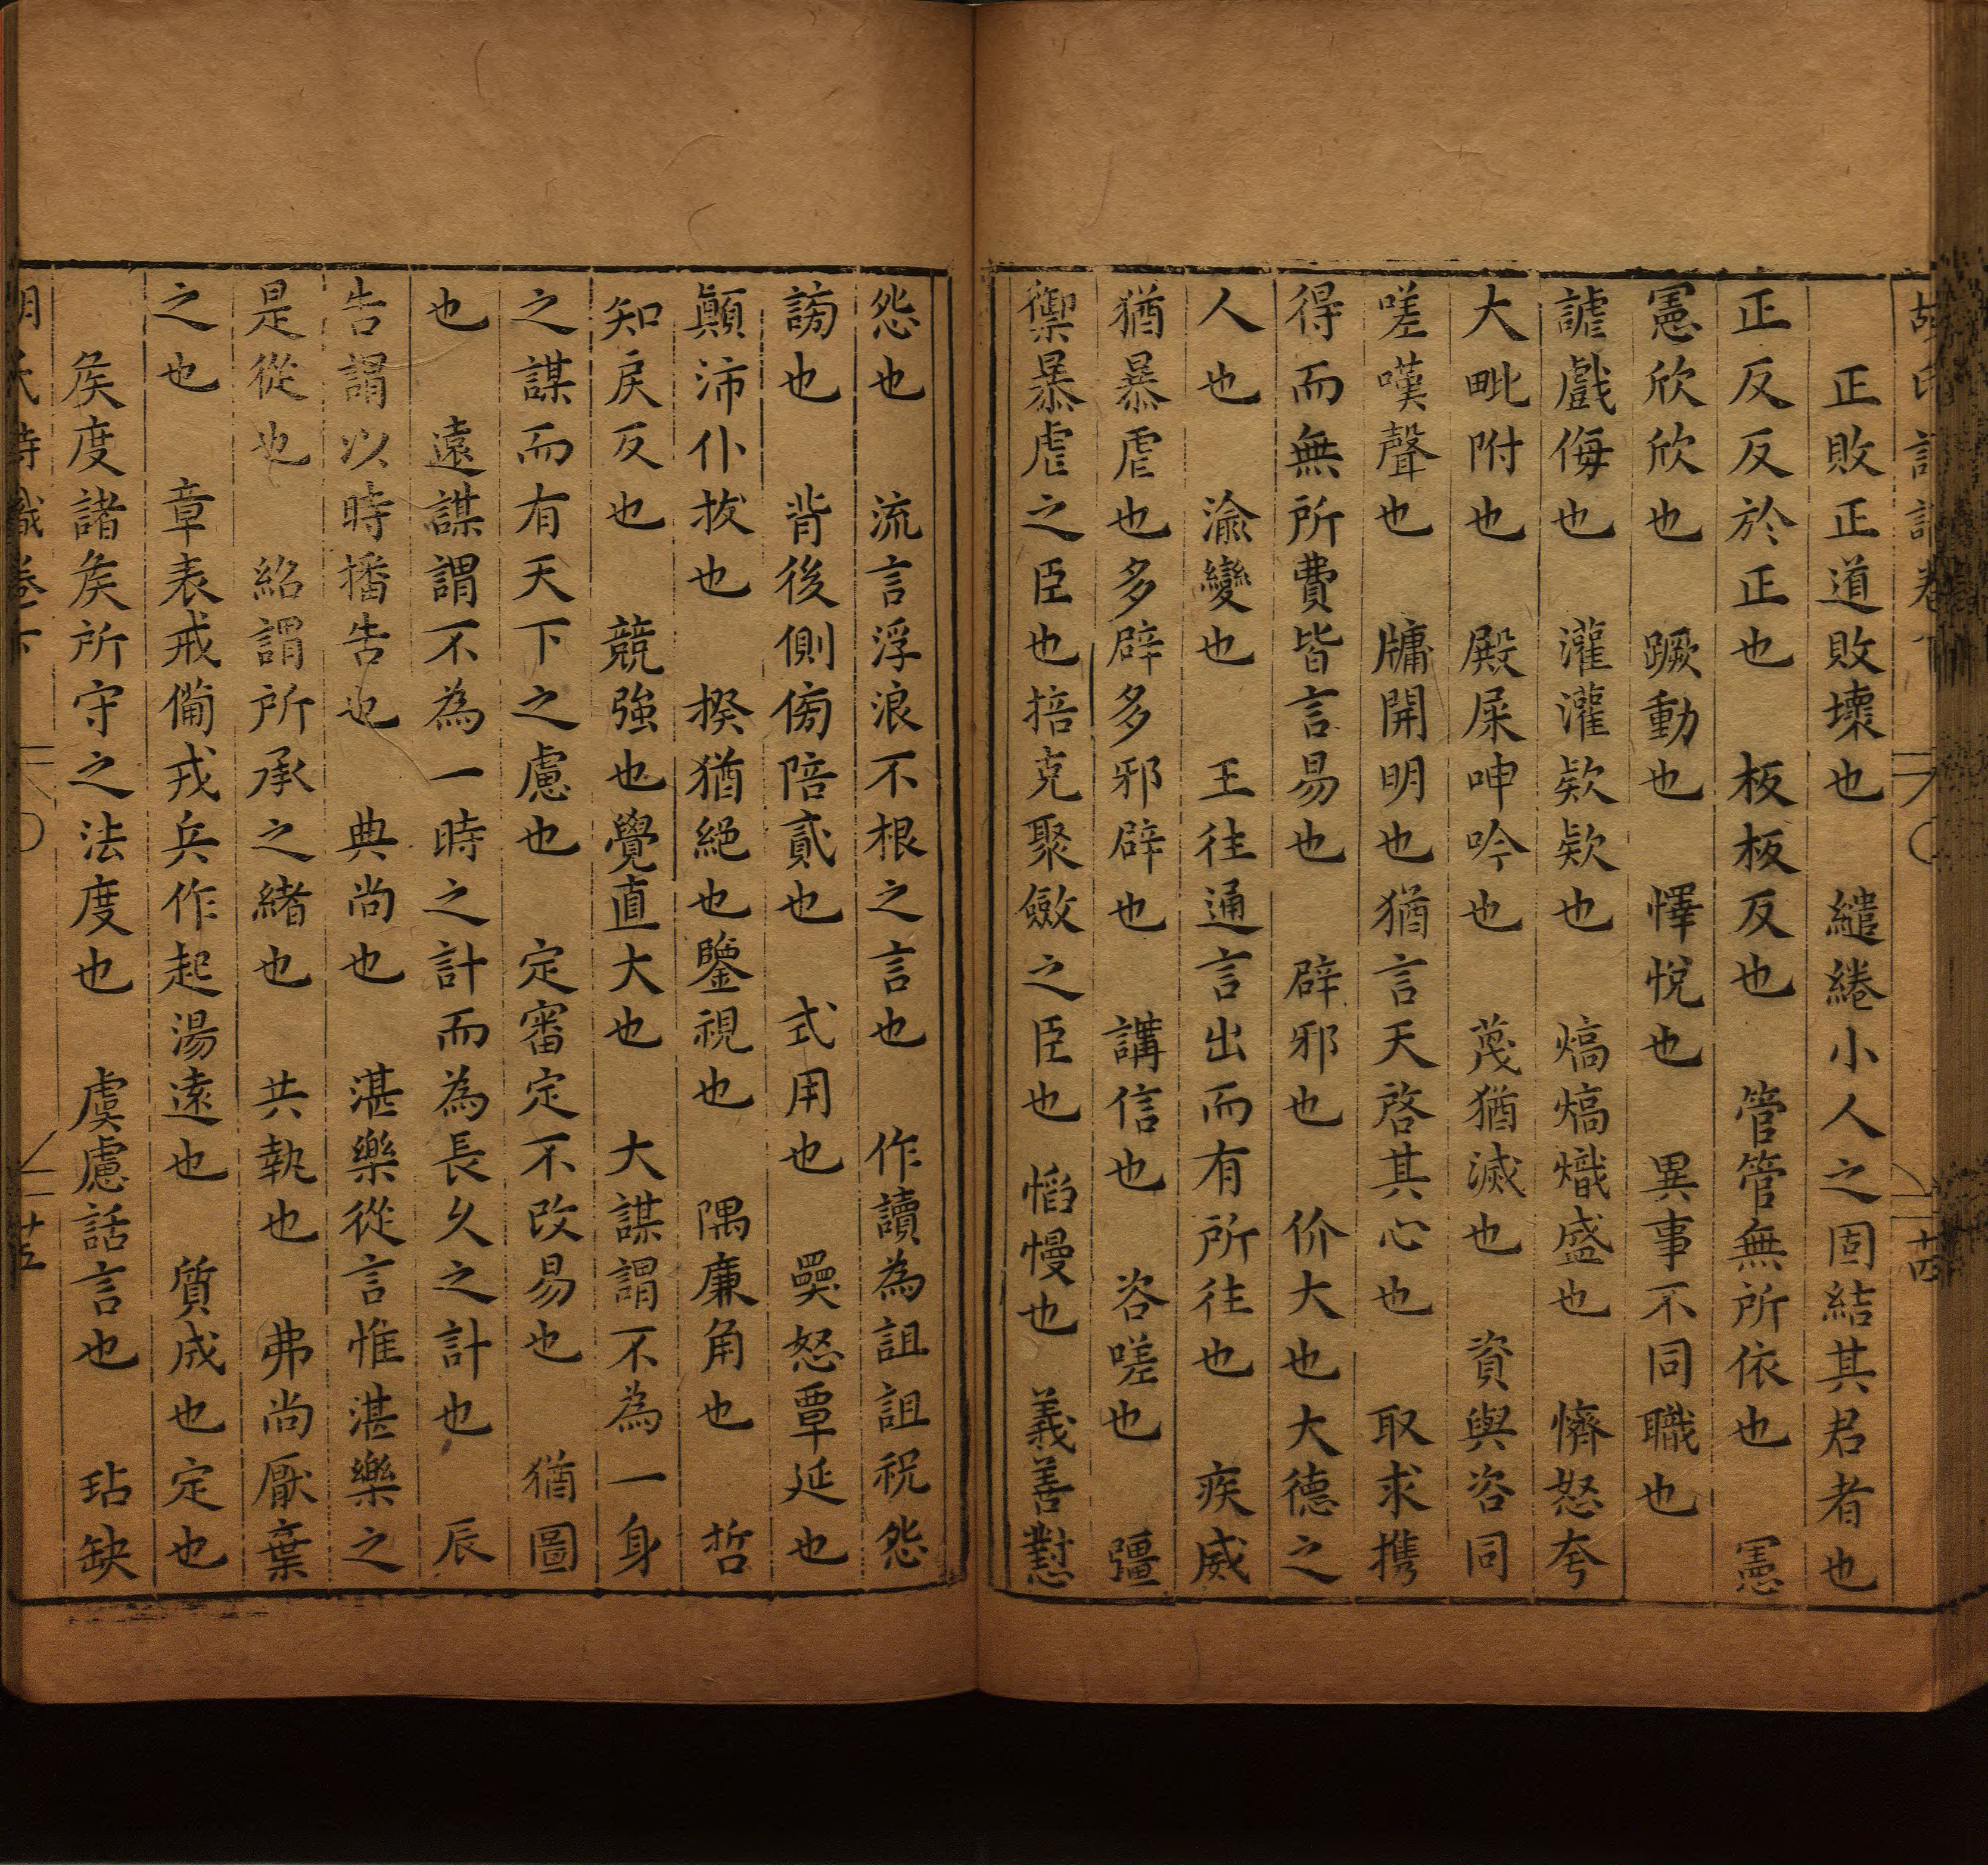 正敗正道敗壞也　繾綣小人之固結其君者也
正反反於正也　板板反也　管管無所依也　憲
憲欣欣也　蹶動也　懌悅也　異事不同職也
謔戲侮也　灌灌欵欵也　熇熇熾盛也　懠怒夸
大毗附也　殿屎呻吟也　蔑猶滅也　資與咨同
嗟嘆聲也　牗開明也猶言天啓其心也　取求攜
得而無所費皆言易也　辟邪也　价大也大德之
人也　渝變也　王往通言出而有所往也　疾威
猶暴虐也多辟多邪辟也　講信也　咨嗟也　彊
禦暴虐之臣也掊克聚斂之臣也　慆慢也　義善懟
怨也　流言浮浪不根之言也　作讀為詛詛祝怨
謗也　背後側傍陪貳也　式用也　奰怒覃延也
顛沛仆拔也　揆猶絕也鑒視也　隅廉角也　哲
知戾反也　競強也覺直大也　大謀謂不為一身
之謀而有天下之慮也　定審定不改易也　猶圖
也　遠謀謂不為一時之計而為長久之計也　辰
告謂以時播告也　典尚也　湛樂從言惟湛樂之
是從也　紹謂所承之緒也　共執也　弗尚厭棄
之也　章表戒備戎兵作起湯遠也　質成也定也
矦度諸矦所守之法度也　虞慮話言也　玷缺